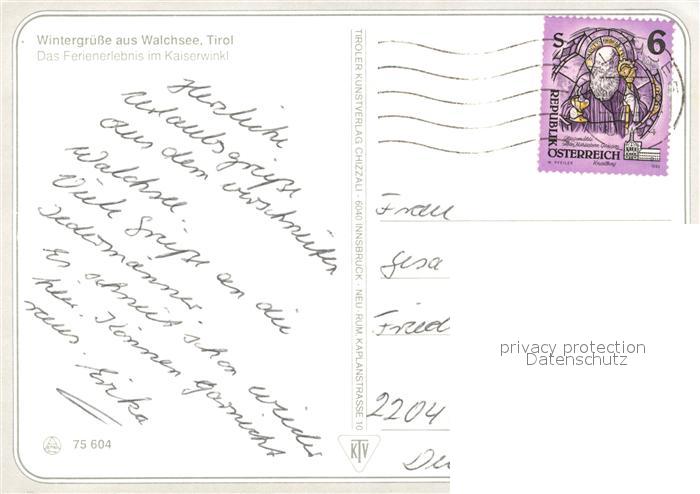 Wintergrüße aus Walchsee, Tirol
Das Ferienerlebnis im Kaiserwinkl
Herzliche
Urlaubsgrüße
aus dem verschneiten
Walchsee
Viele Grüße an die
Jedermänner.
Es schneit schon wieder
hier. Können garnicht
raus. Erika
75 604
TIROLER KUNSTVERLAG CHIZZALI · 6040 INNSBRUCK · NEU-RUM, KAPLANSTRASSE 10
KTV
S 6
REPUBLIK
ÖSTERREICH
W. PFEILER
Frau
Gesa
Fried
2204
De
privacy protection
Datenschutz